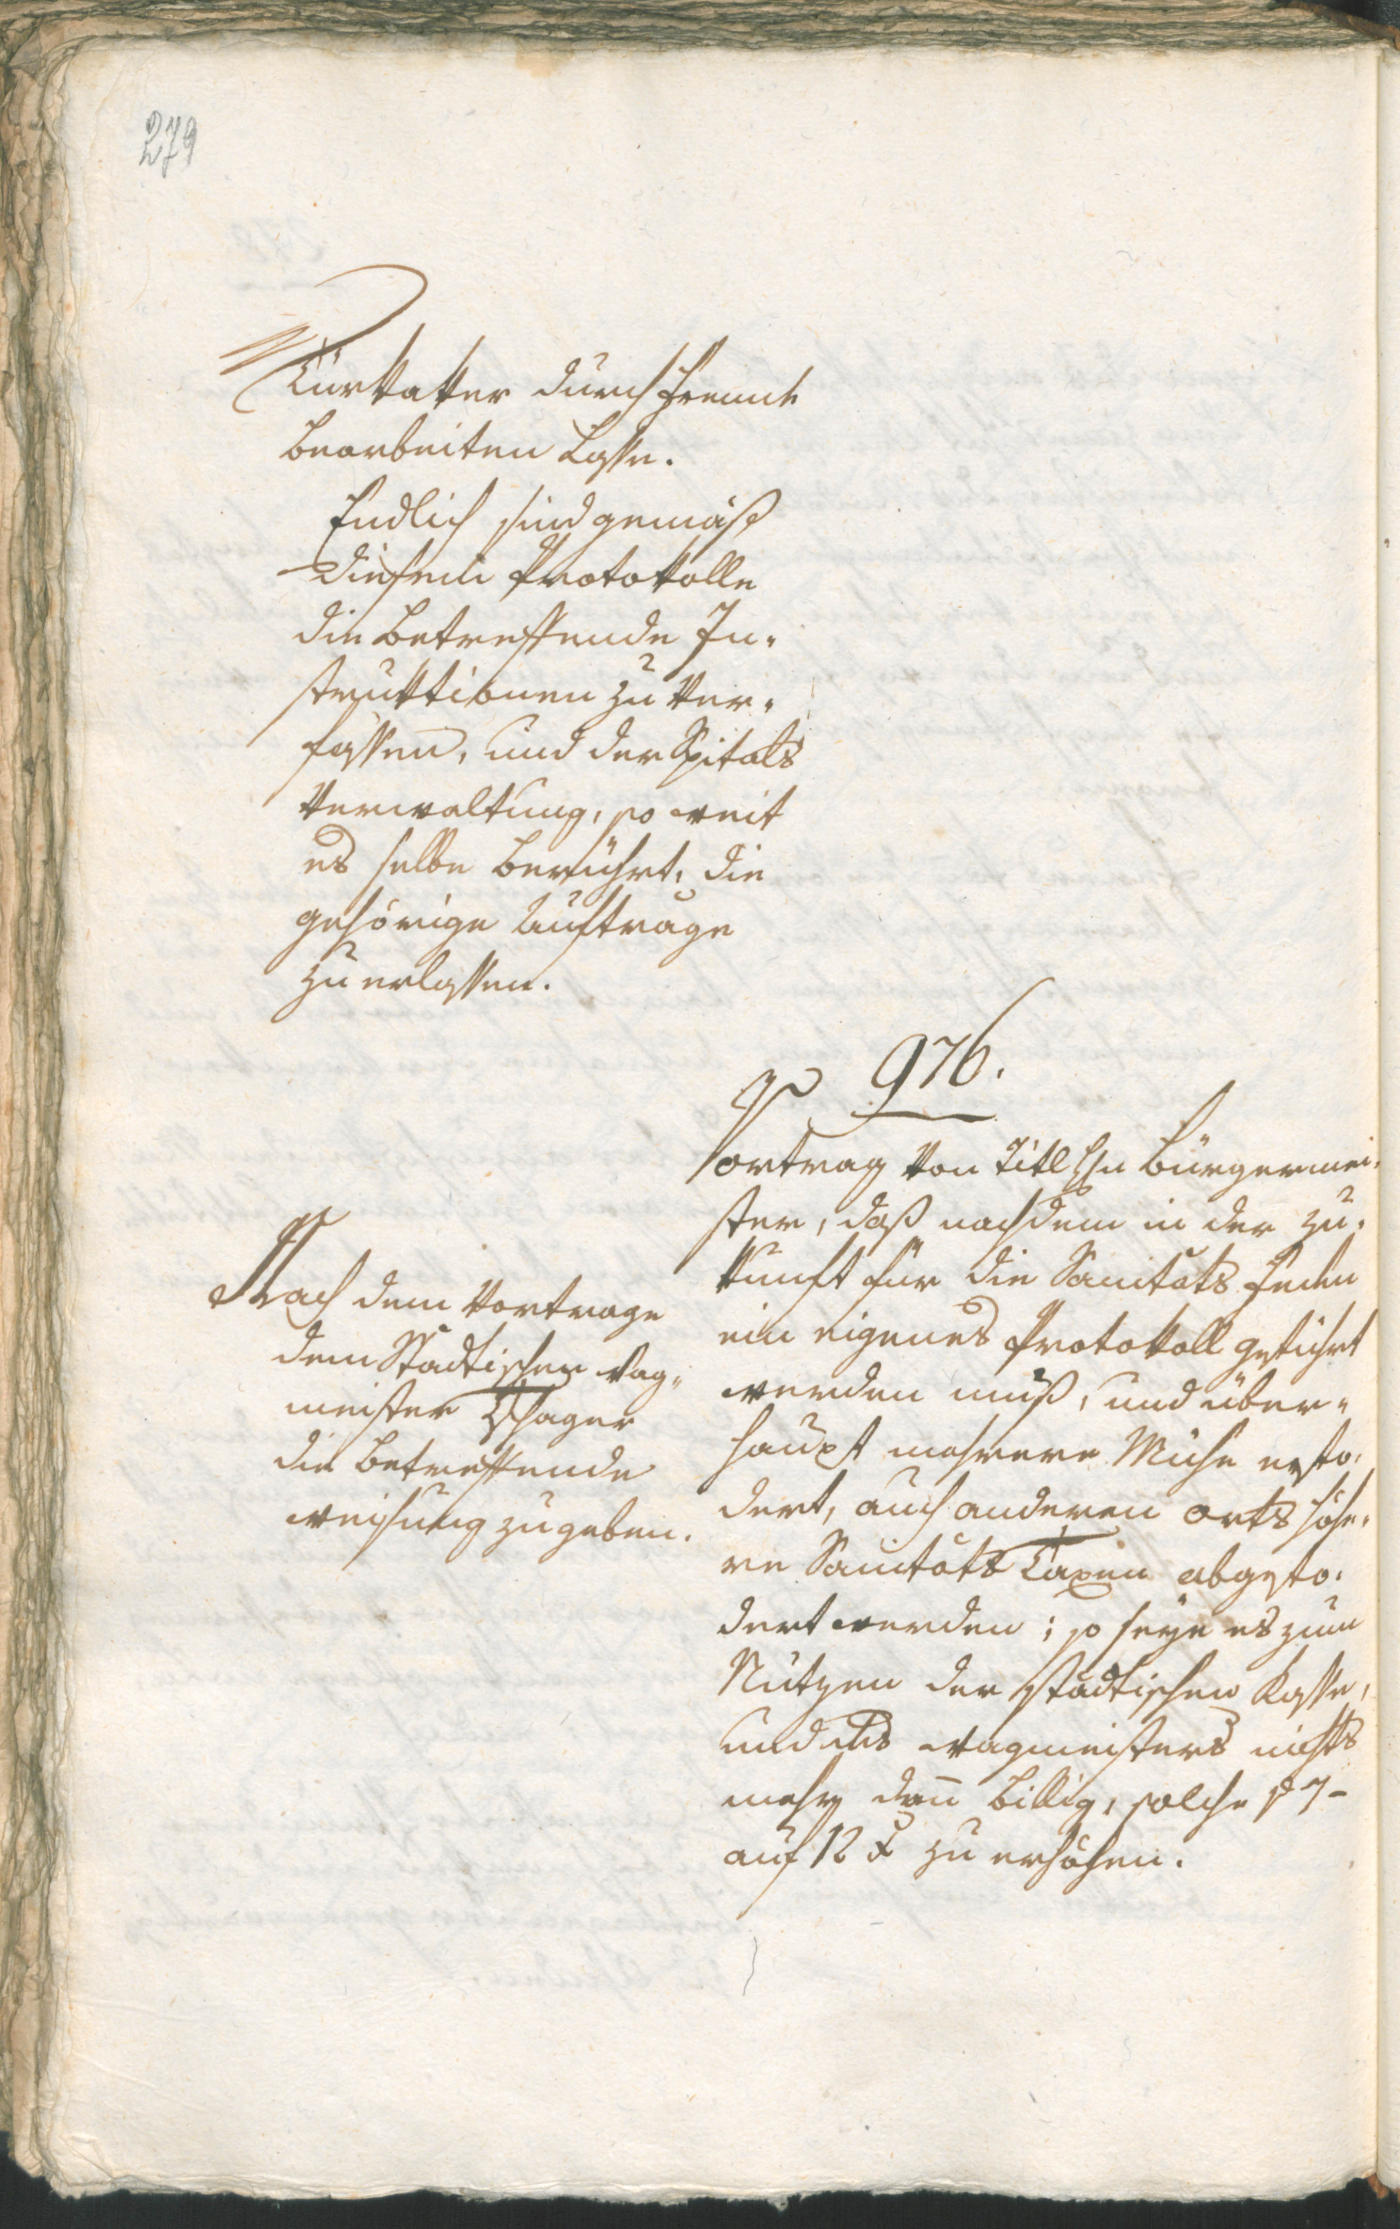 279
Türkaker durch Fremde
bearbeiten Lasse.
Endlich sind gemäß
diesem Protokolle
die Betreffende In-
struktionen zu ver-
fassen, und der Spitals
verwaltung, so weit
es selbe berührt, die
gehörige Aufträge
zu erlassen.
976.
Vortrag von Titl Hn Bürgermei-
ster, daß nachdem in der Zu-
kunft für die Sanitäts Feden
ein eigenes Protokoll geführt
werden muß, und über-
haupt mehrere Mühe erfo-
dert, auch anderen orts höhe-
re Sanitäts Taxen abgefo-
dert werden; so seye es zum
Nutzen der städtischen Kasse,
und des wagmeisters nichts
mehr dañ billig, solche p 7-
auf 12 x zu erhöhen.
Nach dem Vortrage
dem Stadtischen Wag-
meister Tschager
die Betreffende
weisung zu geben.